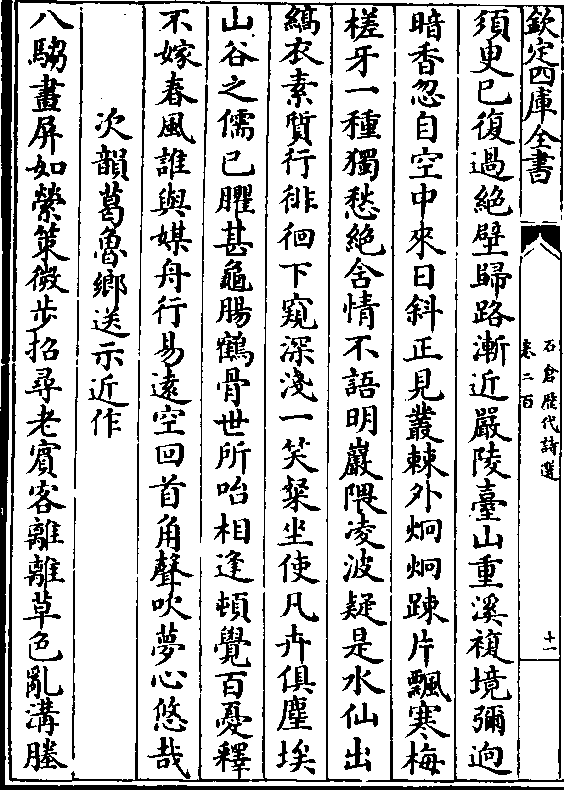 欽定四庫全書
石倉歴代詩選
卷二百
十一
須更已復過絶壁歸路漸近嚴陵臺山重溪複境彌逈
暗香忽自空中來日斜正見叢棘外炯炯踈片飄寒梅
槎牙一種獨愁絶含情不語明巖隈凌波疑是水仙出
縞衣素質行徘徊下窺深淺一笑粲坐使凡卉俱塵埃
山谷之儒已臞甚龜腸鶴骨世所咍相逢頓覺百憂釋
不嫁春風誰與媒舟行易逺空回首角聲吹夢心悠哉
次韻葛魯鄉送示近作
八騶畫屏如縈策微步招尋老賓客離離草色亂溝塍